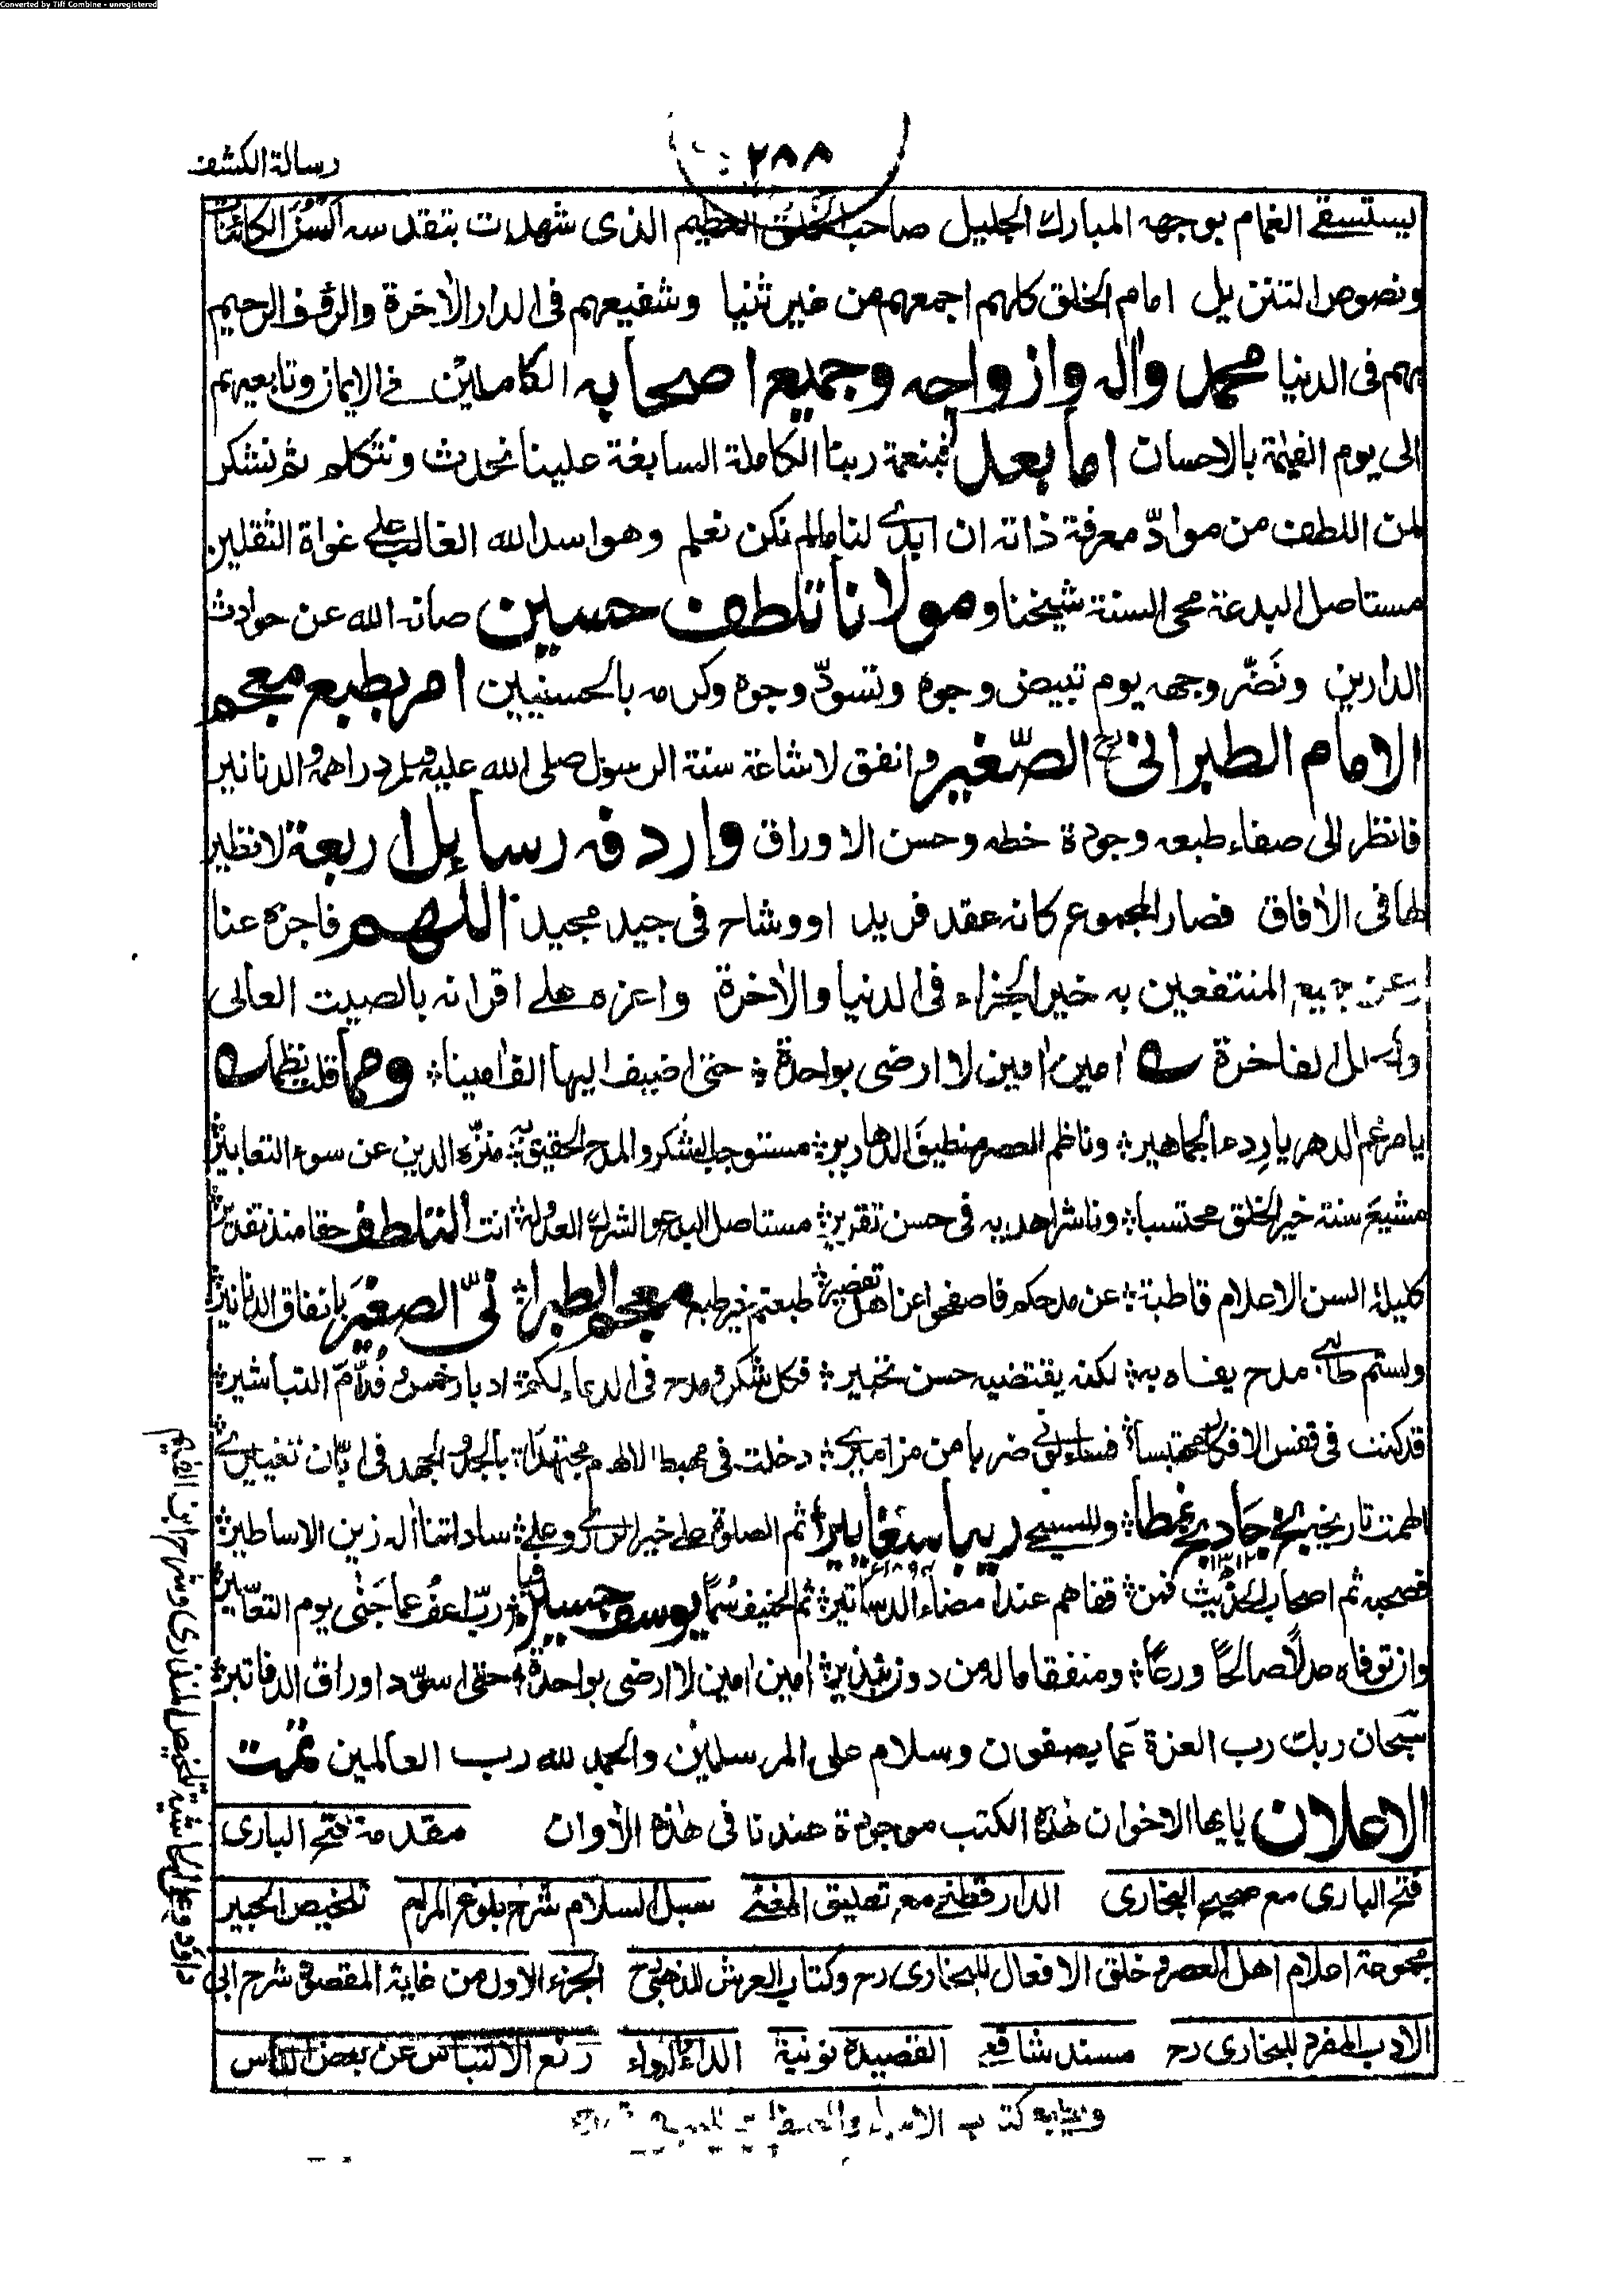 Converted by Tiff Combine - unregistered
٢٨٨
رسالة الكشف
يستسقے الغمام بوجهه المبارك الجليل صاحب الخلق العظيم الذى شهدت بتقدسه السن الكائنات
ونصوص التنزيل امام الخلق كلهم اجمعهم من غير ثنيا وشفيعهم فى الدار الاٰخرة والرؤف الرحيم
بهم فى الدنيا محمد واٰله وازواجه وجميع اصحابه الكاملين فے الايمان وتابعيهم
الى يوم القيٰمة بالاحسان اما بعد فبنعمة ربنا الكاملة السابغة علينا نحدث ونتكلم ثم نشكر
لمن اللطف من موادّ معرفة ذاته ان ابدےٰ لنا مالم نكن نعلم وهو اسد الله الغالب علے غواة الثقلين
مستاصل البدعة محى السنة شيخنا ومولانا تلطف حسين صانه الله عن حوادث
الدارين ونَضّر وجهه يوم تبيض وجوه وتسودّ وجوه وكرمه بالحسنيين امر بطبع معجم
الامام الطبرانى الصّغير وانفق لاشاعة سنة الرسول صلى الله عليه وسلم دراهمه والدنانير
فانظر الى صفاء طبعه وجودة خطه وحسن الاوراق واردفه رسائل اربعة لا نظير
لها فى الاٰفاق فصار المجموع كانه عقد فريد او وشاح فى جيد مجيد اللهم فاجزه عنا
وعن جميع المنتفعين به خير الجزاء فى الدنيا والاٰخرة واعزه علے اقرانه بالصيت العالى
الفاخرة اٰمين اٰمين لا ارضى بواحدة حتى اضيف اليها الف اٰمينا ومما قلت نظما
يا مرغم الدهر يا رِدء الجماهير وناظم العصر منطيق الدهارير مستوجب الشكر والمدح الحقيق به منزّه الدين عن سوء التعابير
مشيعَ سنة خير الخلق محتسبا وناشر اهديه فى حسن تقرير مستاصل البدع والشرك العدو له انت التلطف حقا منذ تقدير
كليلة السن الاعلام قاطبة عن مدحكم فاصفحوا عنا هل تقصير طبعتم خير طبع معجم الطبرانىّ الصغير بانفاق الدنانير
ولستم طالبے مدح يفاه به لكنه يقتضيه حسن تخيير فكل شكر ومدح فى الدعاء لكم ادبار خمس وقُدّام التباشير
قد كنت فى قفس الافكار محتبسا ضربا من مزامير دخلت فى مهبط الالهام مجتهدا بالجد والجهد فى ابّان تغييرے
الهمت تاريخ ثم الصلوة علے خير الورےٰ وعلے ساداتنا اٰله زين الاساطير
١٣١٢
فصحبه ثم اصحاب الحديث فمن قفاهم عند امضاء الدساتير ثم الحنيف سُمّا يوسف حسين فيا ربّ اعفُ عما جَنٰى يوم التعاسير
وان توفاه عدلًا صالحًا ورعًا ومنفقا ماله من دون تبذير اٰمين اٰمين لا ارضى بواحدة حتى اسوّد اوراق الدفاتير
سبحان ربك رب العزة عما يصفون وسلام على المرسلين والحمد لله رب العالمين تمّت
الاعلان يايها الاخوان هٰذه الكتب موجودة عندنا فى هٰذه الاٰوان مقدمة فتح البارى
فتح البارى مع صحيح البخارى الدار قطنے مع تعليق المغنے سبل السلام شرح بلوغ المرام تلخيص الحبير
مجموعة اعلام اهل العصر وخلق الافعال للبخارى رح وكتاب العرش للذهبى رح الجزء الاول من غاية المقصود شرح ابى
داؤد وعلى الحاشية تلخيص المنذرى وشرح ابن القيم
الادب المفرد للبخارى رح مسند شافعے القصيدة نونية الداء والدواء رفع الالتباس عن بعض الناس
كتاب الاسماء والصفات